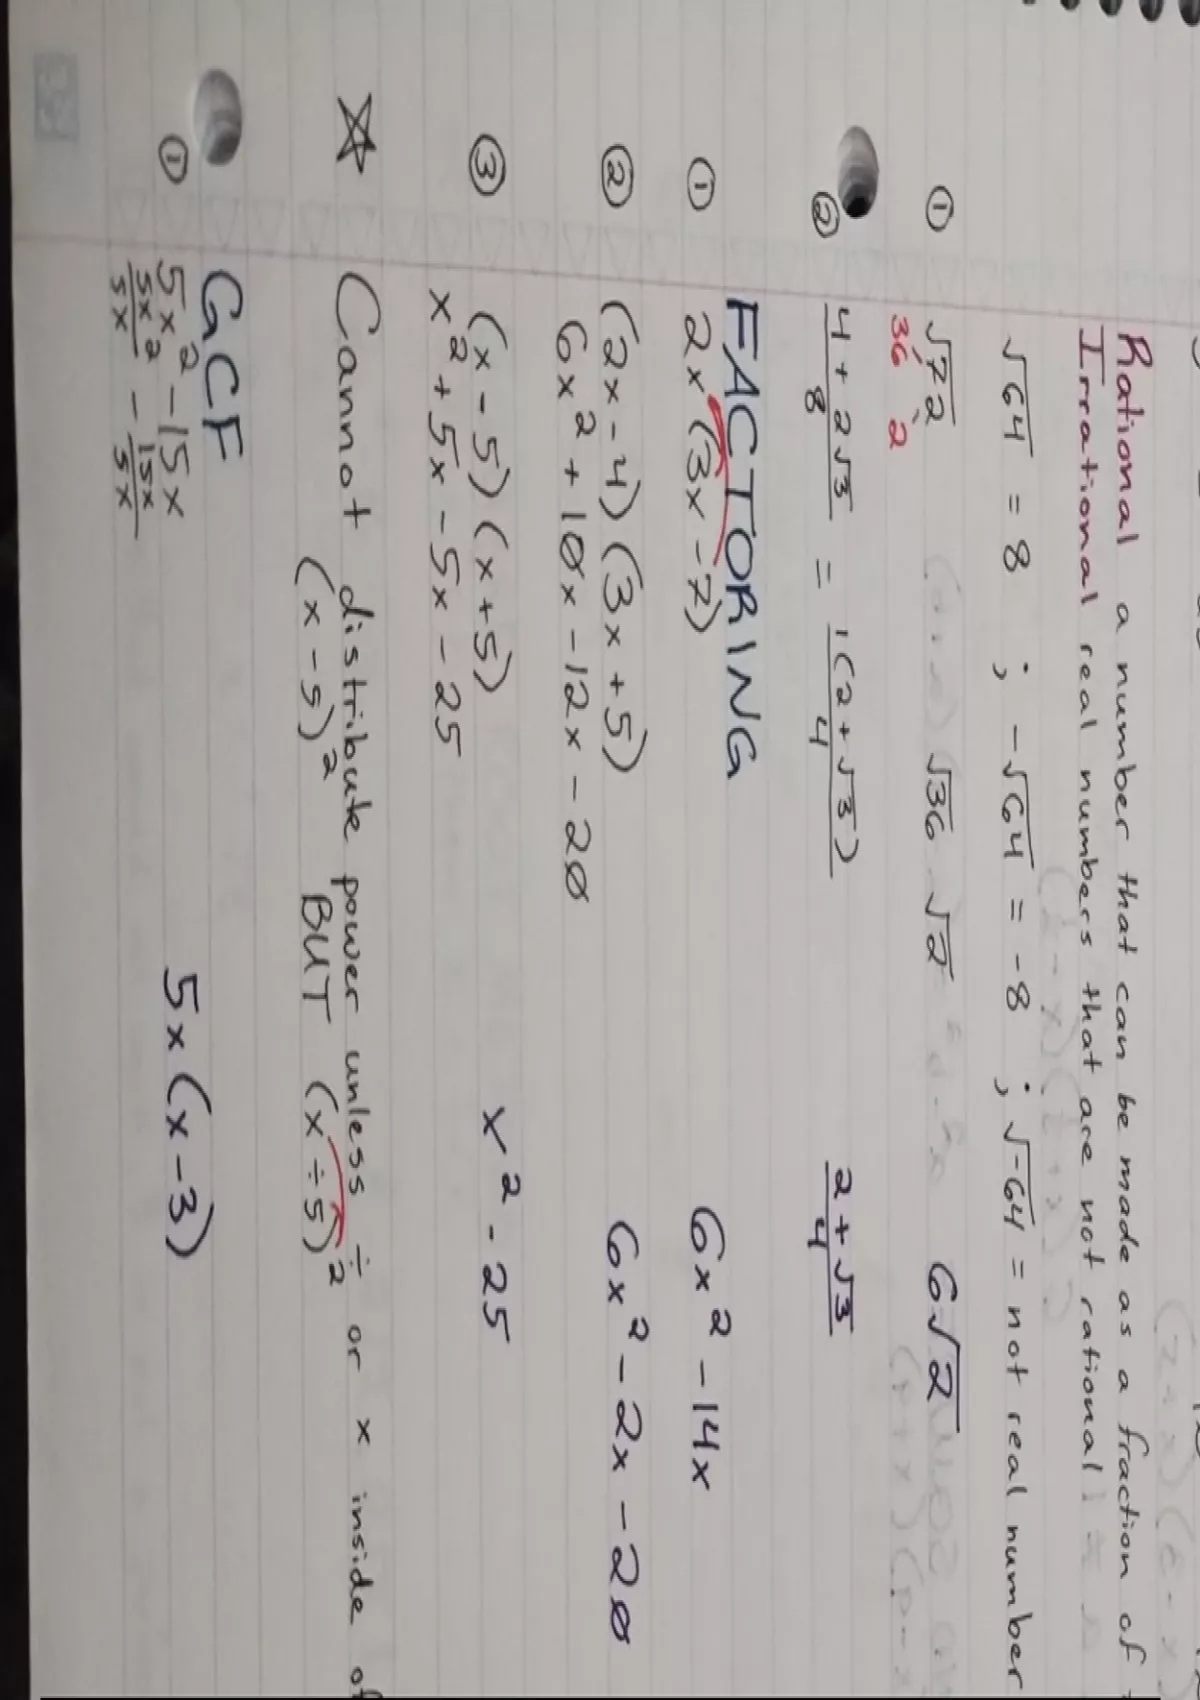 Rational a number that can be made as a fraction of
Irrational real numbers that are not rational
√64 = 8 ; -√64 = -8 ; √-64 = not real number
① √72 √36 √2 6√2
36 2
② (4 + 2√3)/8 = 1(2+√3)/4 (2+√3)/4
FACTORING
① 2x(3x-7) 6x² - 14x
② (2x-4)(3x+5) 6x² - 2x - 20
6x² + 10x - 12x - 20
③ (x-5)(x+5) x² - 25
x² + 5x - 5x - 25
☆ Cannot distribute power unless ÷ or x inside of
(x-5)² BUT (x÷5)²
GCF
① 5x² - 15x 5x(x-3)
5x²/5x - 15x/5x